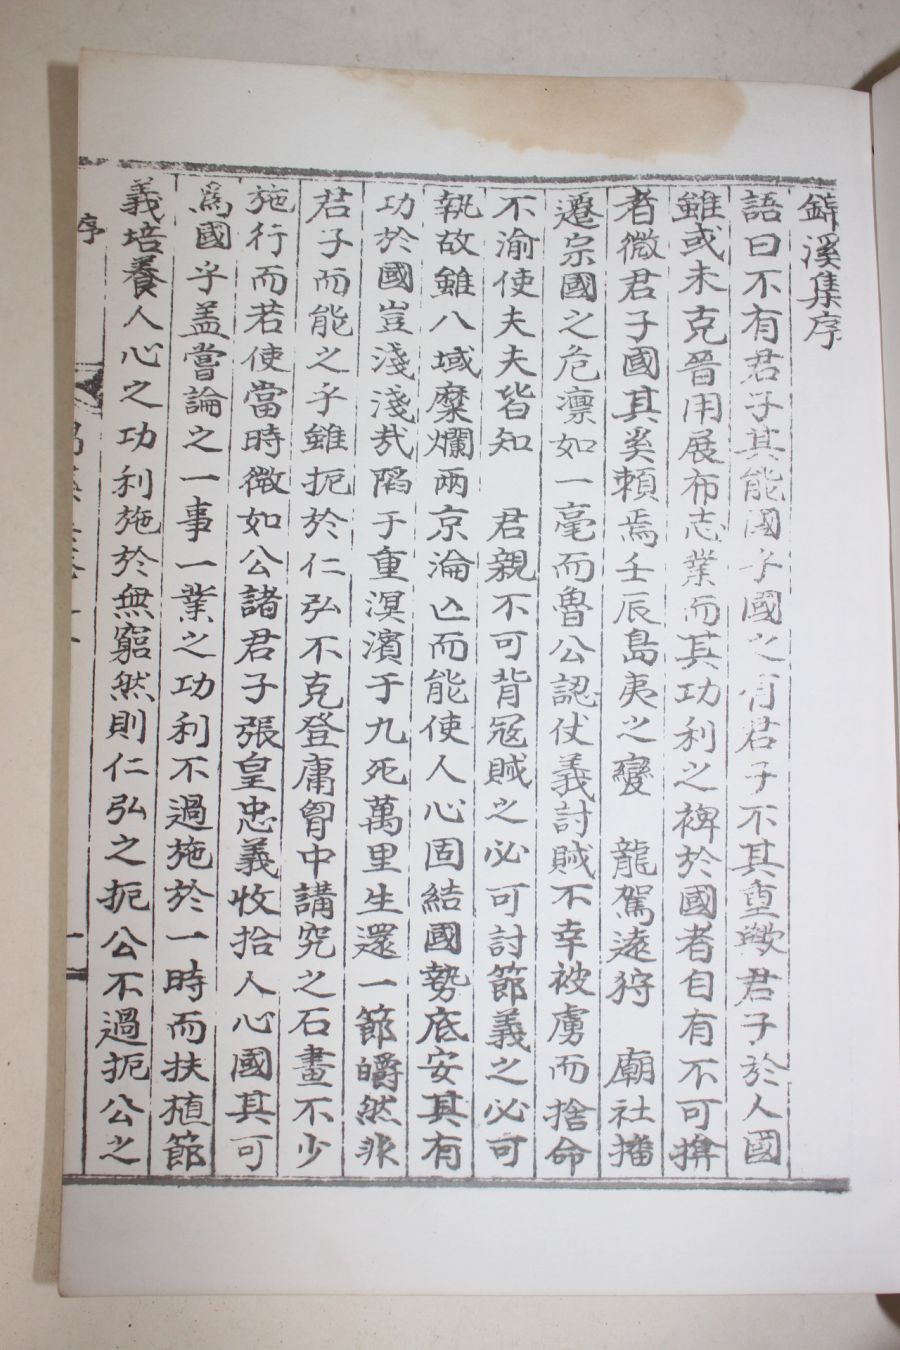 錦溪集序
語曰不有君子其能國乎國之有君子不其重歟君子於人國
雖或未克晉用展布志業而其功利之裨於國者自有不可揜
者微君子國其奚賴焉壬辰島夷之變 龍駕遠狩 廟社播
遷宗國之危凛如一毫而魯公認仗義討賊不幸被虜而捨命
不渝使夫夫皆知 君親不可背冦賊之必可討節義之必可
執故雖八域糜爛兩京淪亾而能使人心固結國勢底安其有
功於國豈淺淺㢤陷于重溟濱于九死萬里生還一節皭然非
君子而能之乎雖扼於仁弘不克登庸胷中講究之石畫不少
施行而若使當時微如公諸君子張皇忠義收拾人心國其可
爲國乎盖嘗論之一事一業之功利不過施於一時而扶植節
義培養人心之功利施於無窮然則仁弘之扼公不過扼公之
序